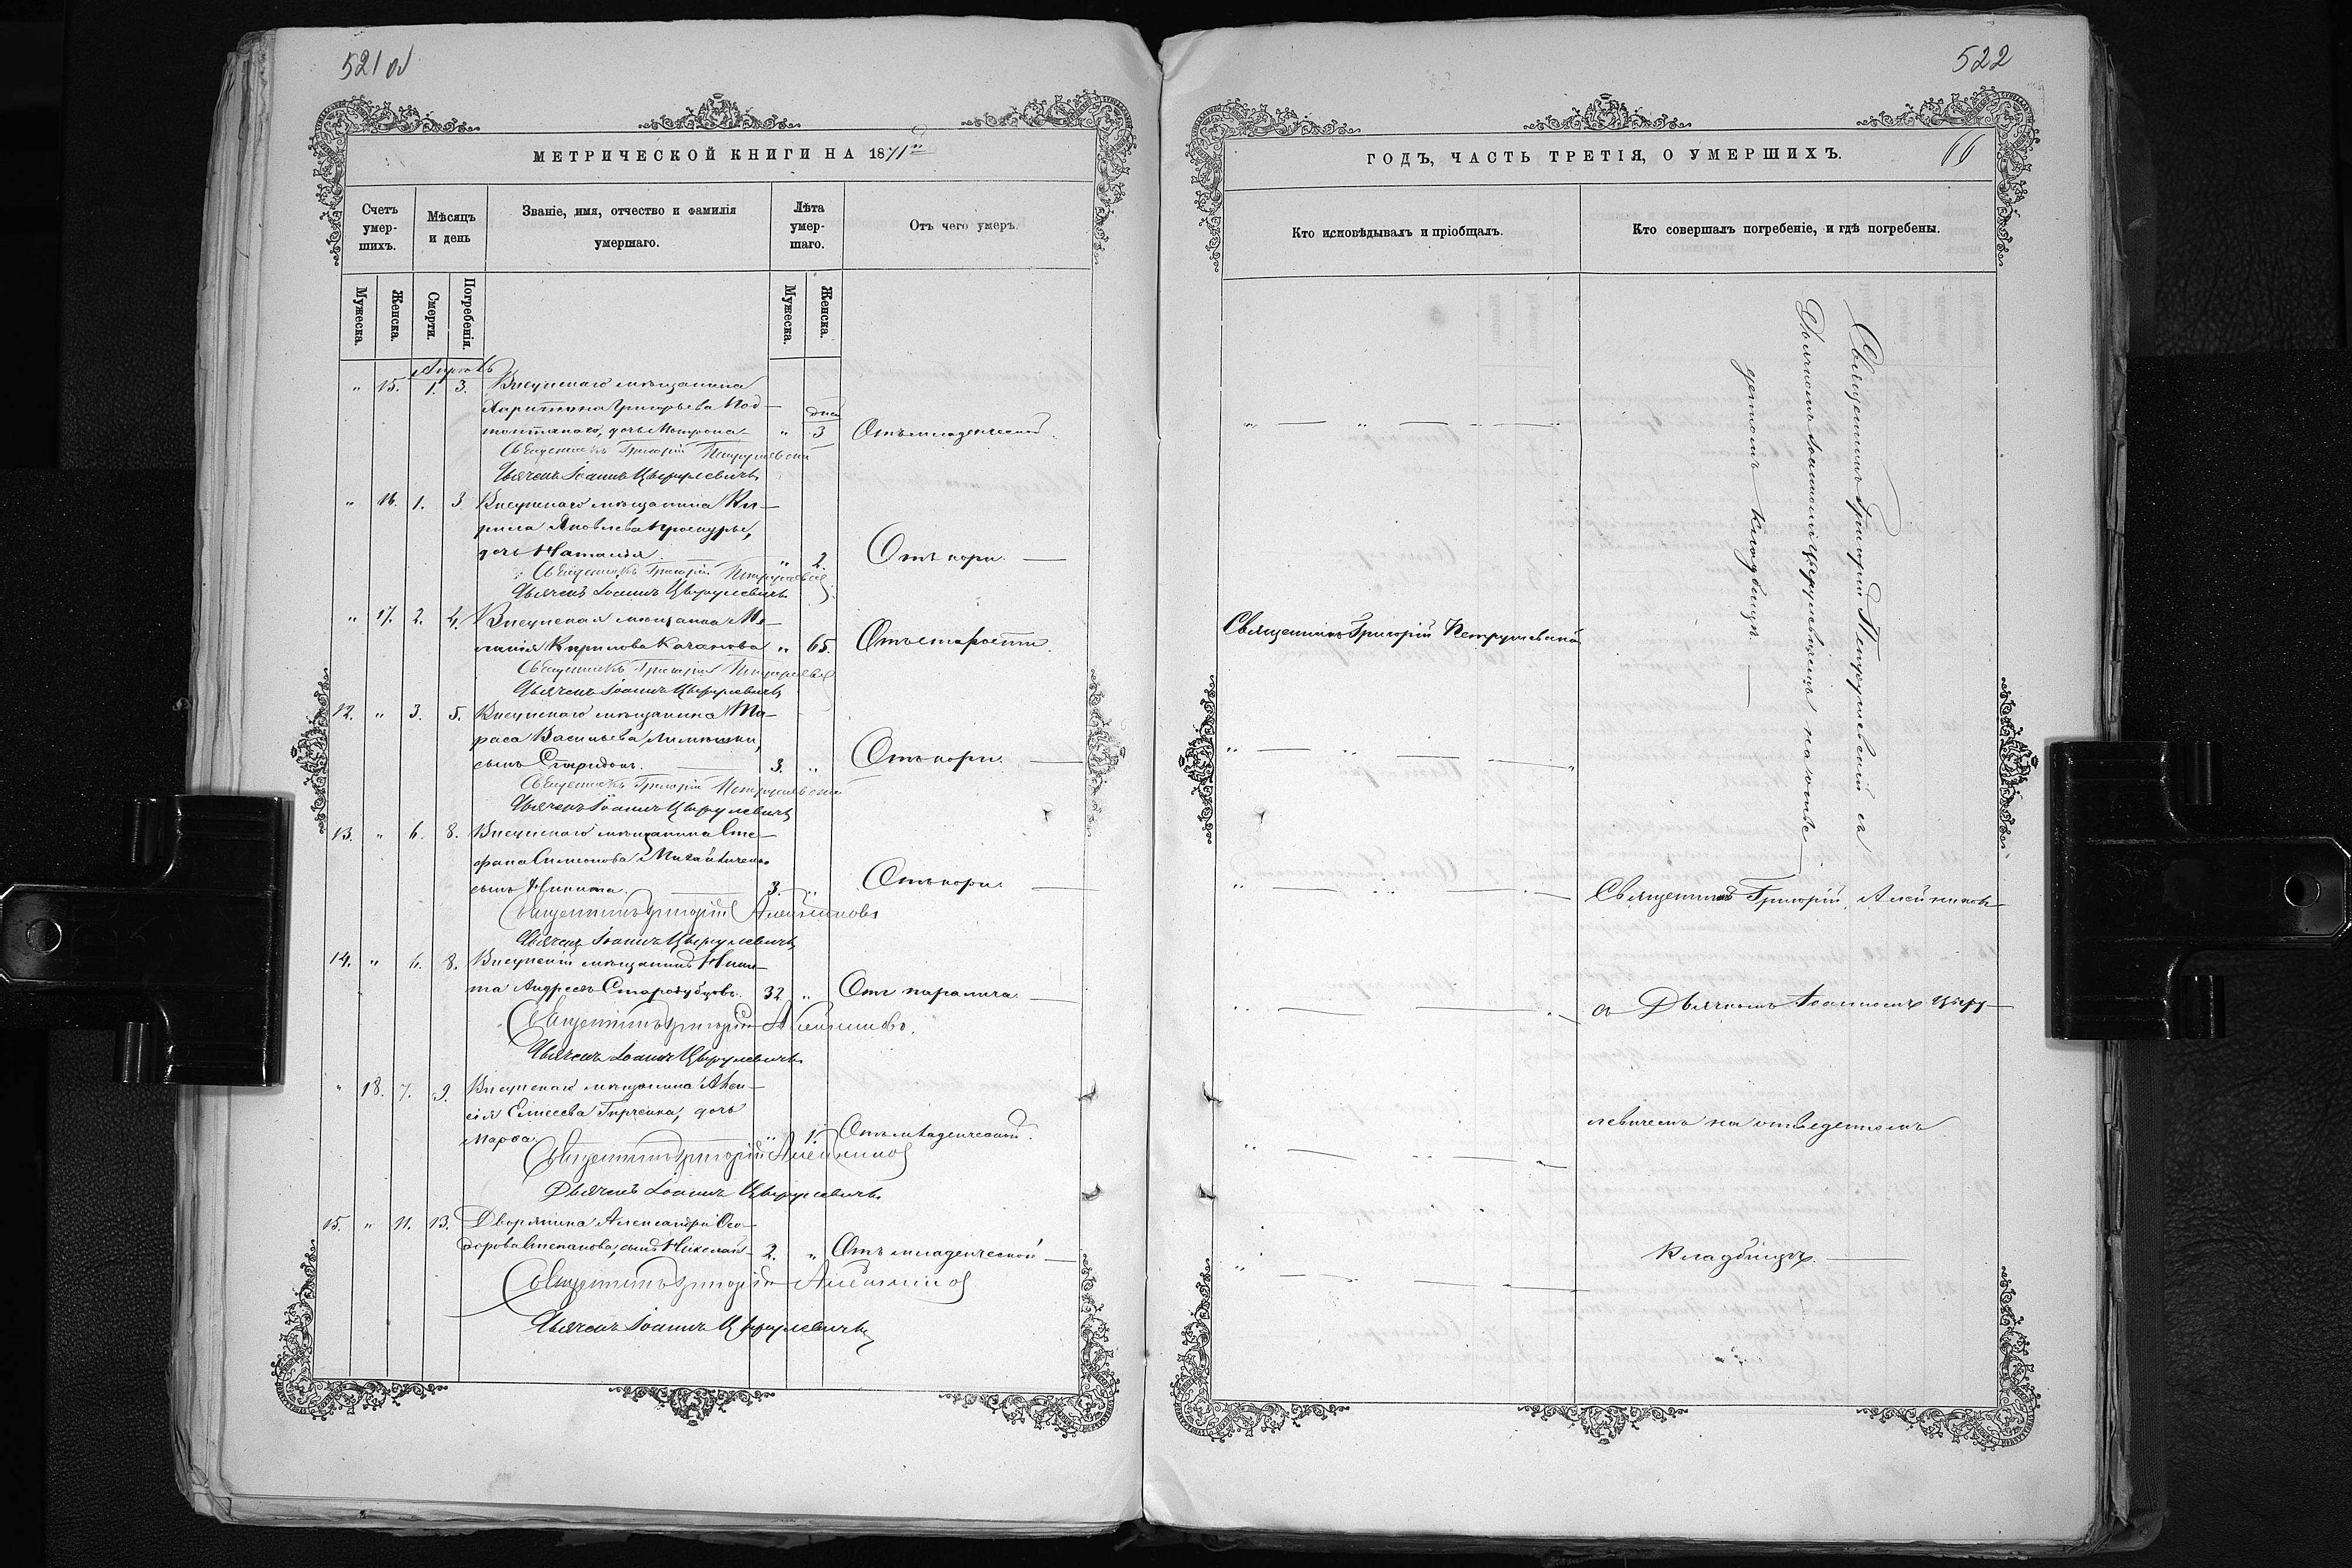 521 об
МЕТРИЧЕСКОЙ КНИГИ НА 1871й
Счетъ умер-шихъ.
Мѣсяцъ и день
Званіе, имя, отчество и фамилія умершаго.
Лѣта умер-шаго.
Отъ чего умеръ.
Мужеска.
Женска.
Смерти.
Погребенія.
Мужеска.
Женска.
Апрѣль
" 15. 1. 3. мѣщанина
Харитона Григорьева Под- дней
дочь Матрона " 3 Отъ младенческой.
Священникъ Григорій Петрушевскій
Дьячекъ Іоаннъ Цырулевичъ
" 16. 1. 3. мѣщанина Ки-
рила Яковлева
дочь Наталія " 2. Отъ кори.
Священникъ Григорій Петрушевскій
Дьячекъ Іоаннъ Цырулевичъ
" 17. 2. 4. мѣщанка Ме-
ланія Кирилова Качанова " 65. Отъ старости.
Священникъ Григорій Петрушевскій
Дьячекъ Іоаннъ Цырулевичъ
12. " 3. 5. мѣщанина Та-
раса Васильева
сынъ Спиридонъ. 3. " Отъ кори.
Священникъ Григорій Петрушевскій
Дьячекъ Іоаннъ Цырулевичъ
13. " 6. 8. мѣщанина Сте-
фана Симеонова
сынъ Никита. 3. " Отъ кори.
Священникъ Григорій Алейниковъ
Дьячекъ Іоаннъ Цырулевичъ
14. " 6. 8. мѣщанинъ Ники-
та Андреевъ Стародубцовъ. 32 " Отъ паралича.
Священникъ Григорій Алейниковъ.
Дьячекъ Іоаннъ Цырулевичъ
" 18. 7. 9. мѣщанина Алек-
сія Елисеева дочь
Марфа " 1. Отъ младенческой.
Священникъ Григорій Алейниковъ
Дьячекъ Іоаннъ Цырулевичъ.
15. " 11. 13. Дворянина Александра Ѳео-
дорова Степанова, сынъ Николай 2. " Отъ младенческой
Священникъ Григорій Алейниковъ
Дьячекъ Іоаннъ Цырулевичъ
522
ГОДЪ, ЧАСТЬ ТРЕТІЯ, О УМЕРШИХЪ.
Кто исповѣдывалъ и пріобщалъ.
Кто совершалъ погребеніе, и гдѣ погребены.
Священникъ Григорій Петрушевскій съ
Дьячкомъ Іоанномъ Цырулевичемъ на отве-
денномъ кладбищѣ.
Священникъ Григорій Петрушевскій
Священникъ Григорій Алейниковъ
съ Дьячкомъ Іоанномъ Цыру-
левичемъ на отведенномъ
Кладбищѣ.